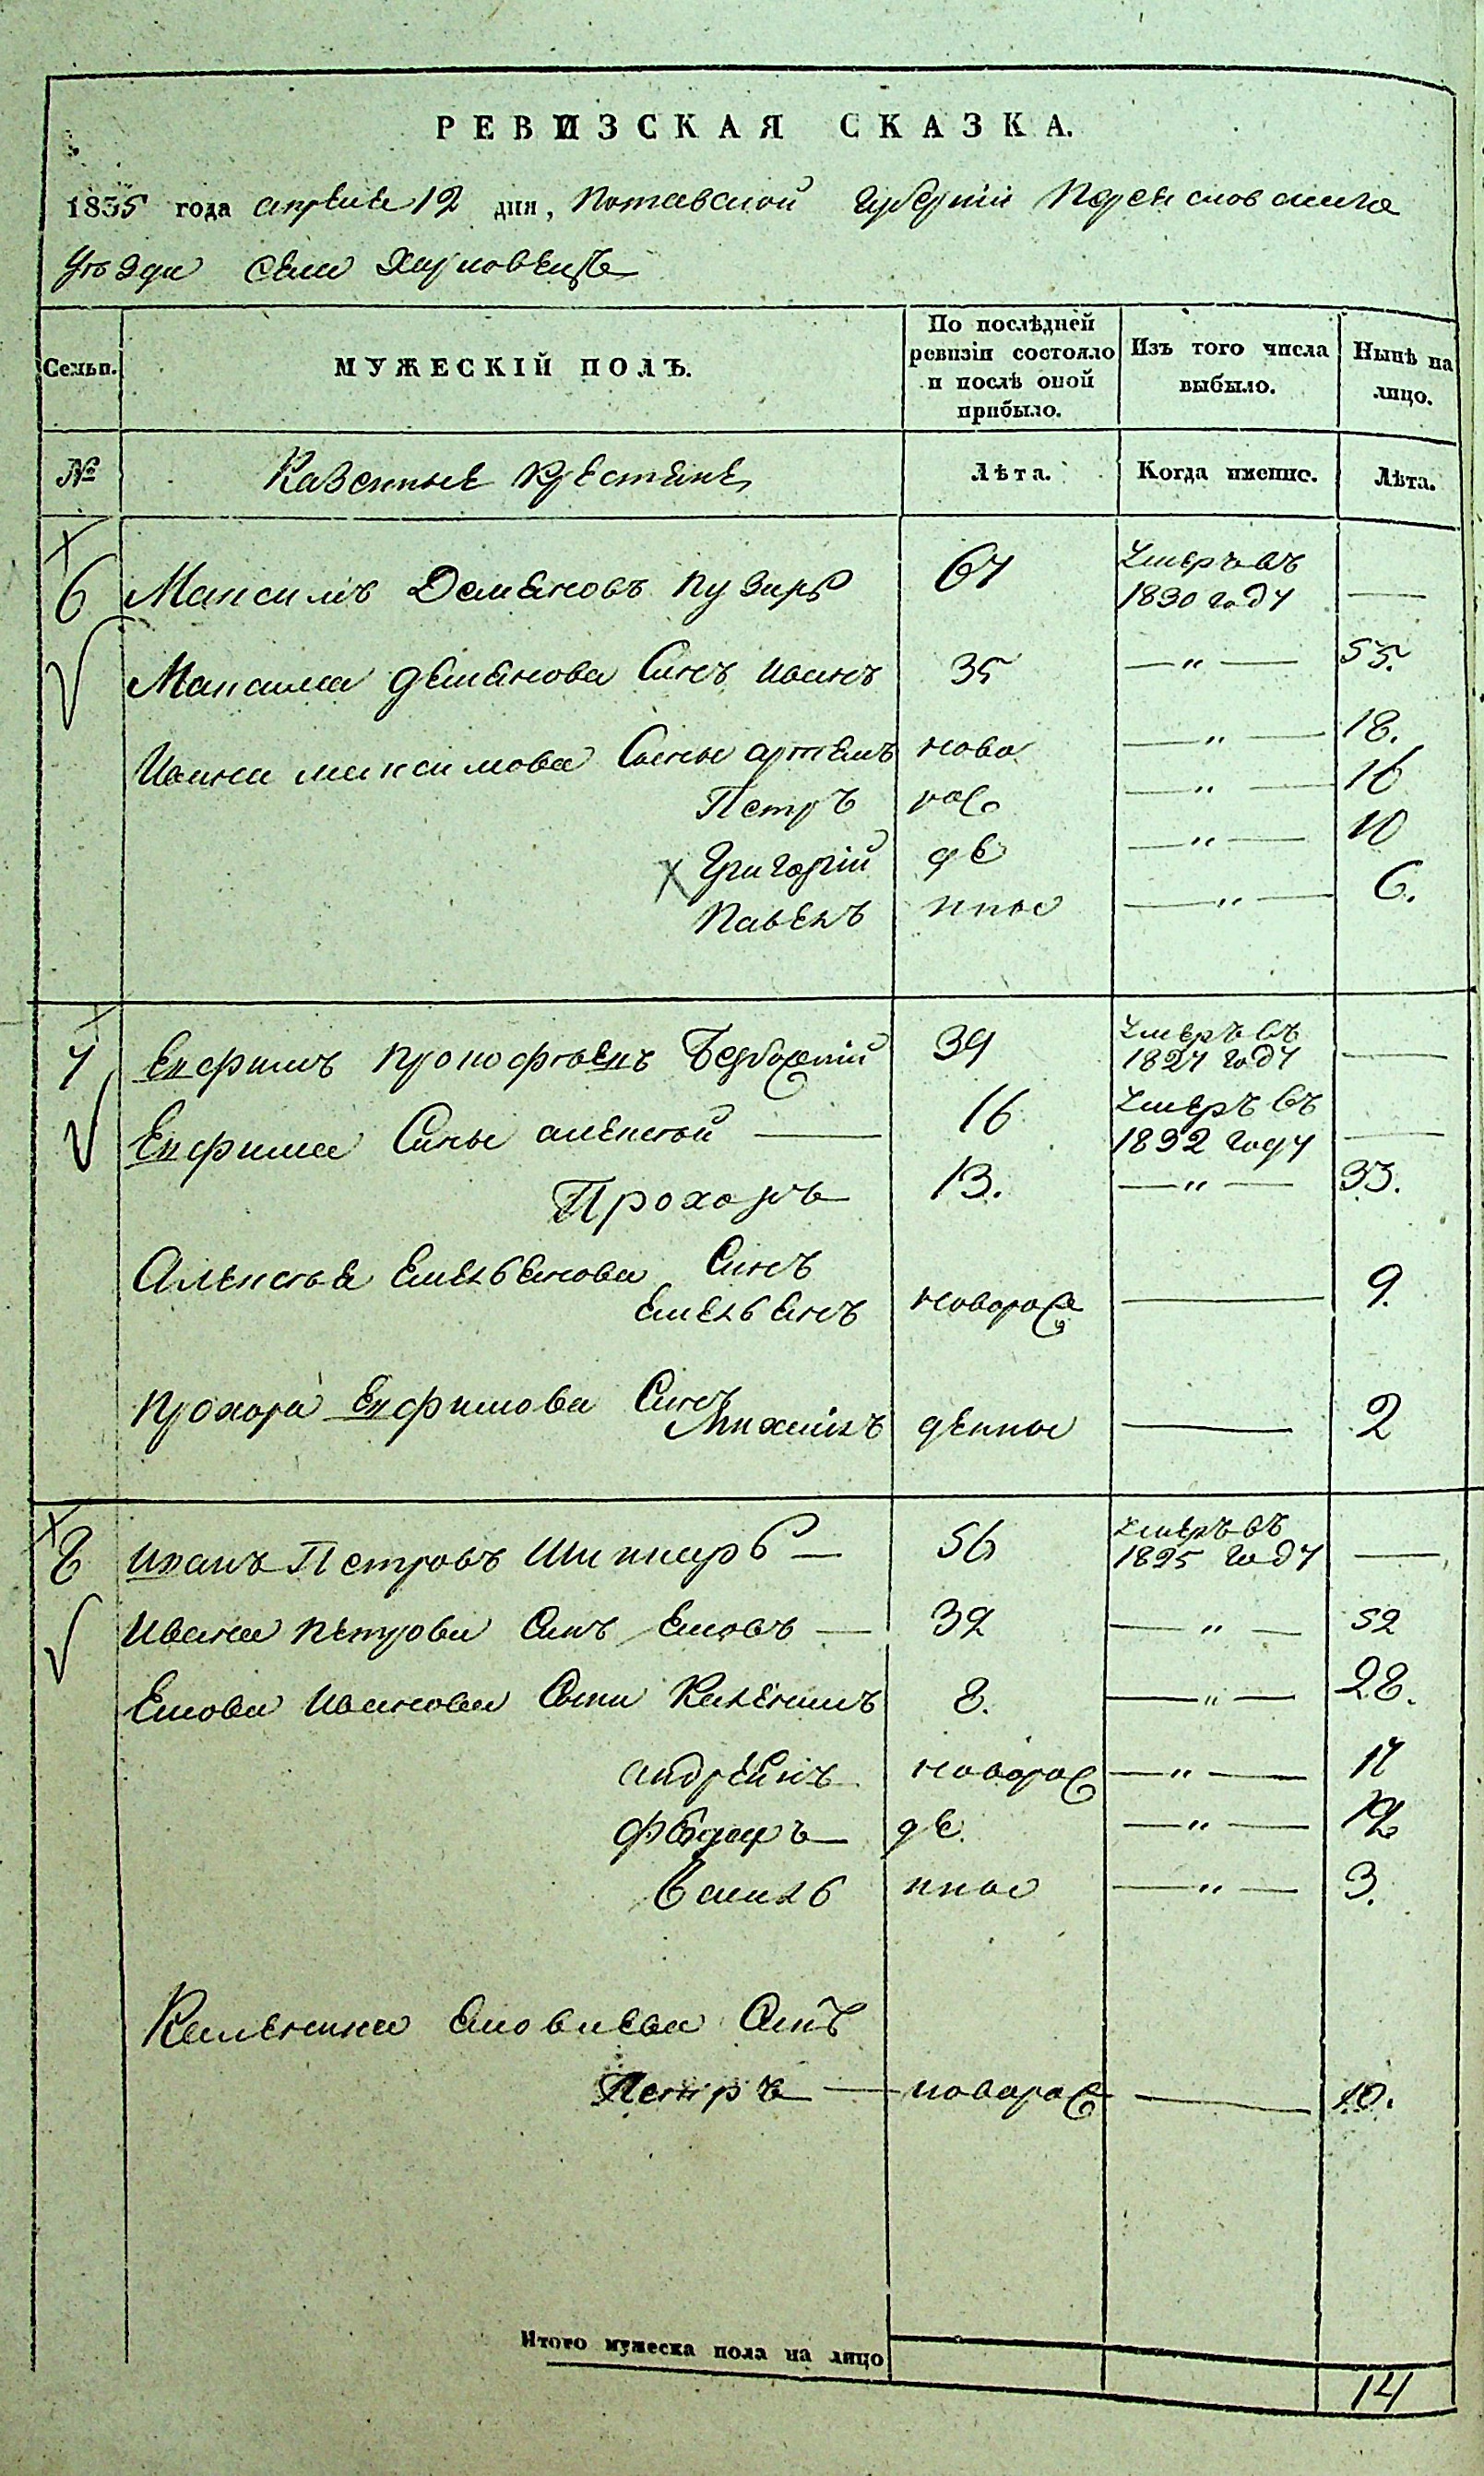 РЕВИЗСКАЯ СКАЗКА.
1835 года апреля 12 дня, Полтавской губернии Переяславского
уезда села Харковецъ
Семьи. МУЖЕСКІЙ ПОЛЪ. По послѣдней ревизіи состояло и послѣ оной прибыло. Изъ того числа выбыло. Нынѣ на лицо.
№ Казенные крестяне Лѣта. Когда именно. Лѣта.
6 Максимъ Демяновъ Пузирь 67 Умеръ въ 1830 году —
Максима Демянова Синъ Иванъ 35 — „ — 55.
Ивана максимова Сыны артемъ ново — „ — 18.
Петръ рос — „ — 16
Х Григорій де — „ — 10
Павелъ нные — „ — 6.
7 Евфимъ Прокофьевъ 39 Умеръ въ 1827 году —
Евфима Сины алексей — 16 Умеръ въ 1832 году —
Прохоръ 13. — „ — 33.
Алексея Емельенова Синъ
Емельенъ новорос — 9.
Прохора Евфимова Синъ
Михаилъ денные — 2
8 Иванъ Петровъ Шинкарь — 56 Умеръ въ 1825 году —
Ивана Петрова Синъ Ековъ — 32 — „ — 52
Екова Иванова Сини Каленикъ 8. — „ — 28.
андрейикъ новорос — „ — 17
Федоръ де — „ — 12
Василь нные — „ — 3.
КаленикаЕковлева Синъ
Петръ — новорос — 10.
Итого мужеска пола на лицо 14